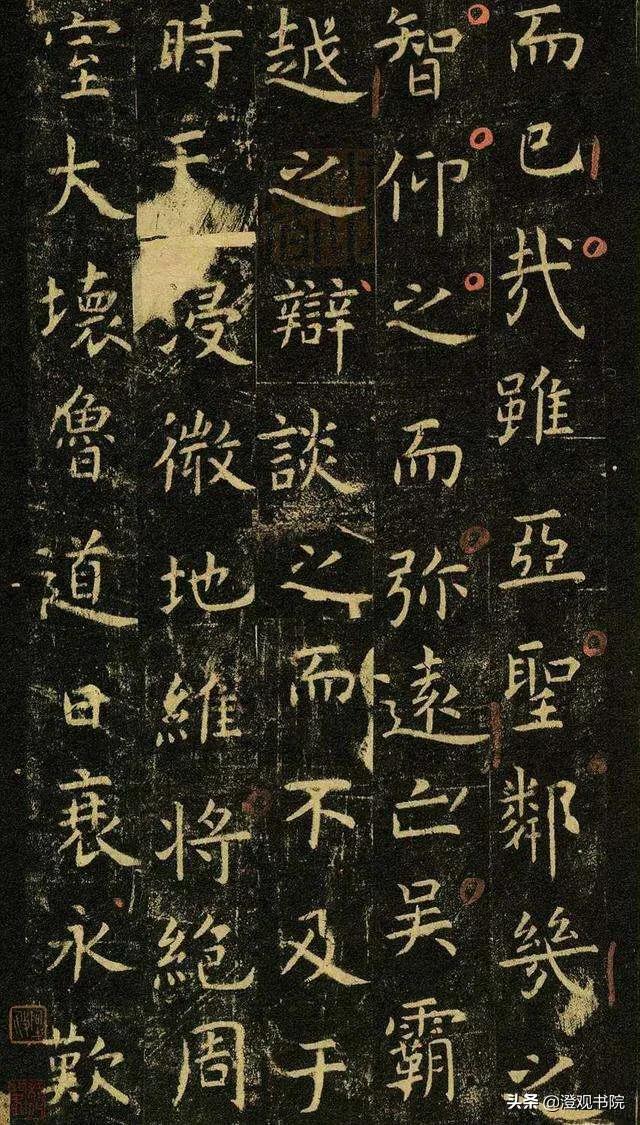 而已哉雖亞聖鄰幾之
智仰之而弥遠亡吴霸
越之辯談之而不及于
時天浸微地維將絶周
室大壞魯道日衰永歎
头条 @澄观书院